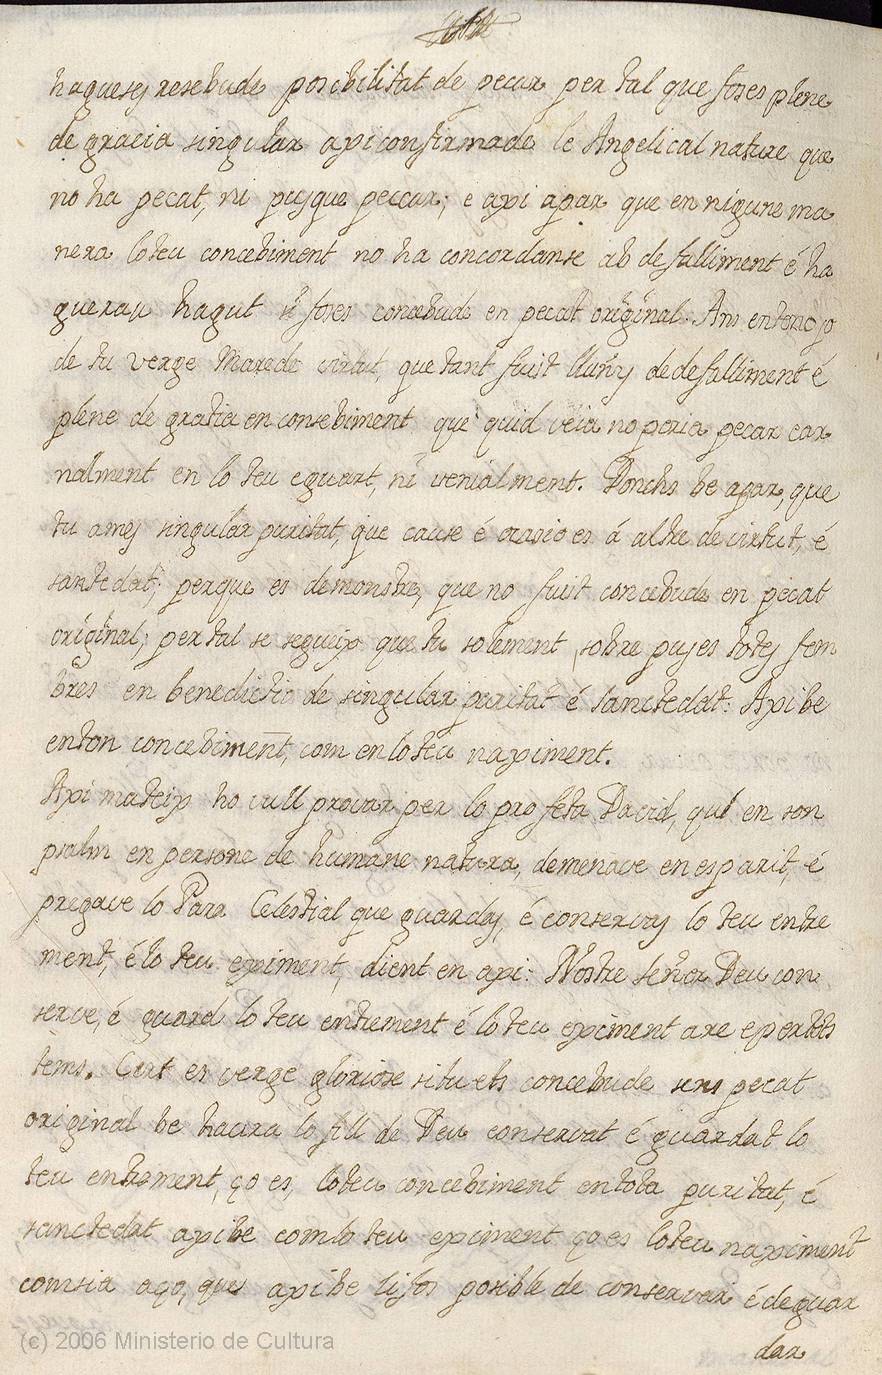 haguesej resebude posibilitat de pecar per tal que foses plene
de gracia singular axi confirmade le Angelical nature que
no ha pecat, ni pusque peccar; e axi apar que en nigune ma
nera lo teu concebiment no ha concordanse ab defalliment é ha
guerau hagut si foses concebude en pecat original. Ans entenc jo
de tu verge Marede virtut, que tant fuist lluñy de defalliment é
plene de gratia en consebiment que quid veia no poria pecar car
nalment en lo teu eguart, ni venialment. Donchs be apar, que
tu ames singular puritat, que cause é ocasio es á altre de virtut, é
santedat; perque es demonstre, que no fuist concebude en pecat
original; per tal se segueix que tu solement, sobre pujes totes fem
bres en benedictio de singular puritat é sanctedat: Axi be
enton concebiment, com en lo teu naximent.
Axi mateix ho vull provar per lo profeta David, qui en son
psalm en persone de humane natura, demenave en esparit, é
pregave lo Para Celestial que guardas, é conservas lo teu entre
ment, é lo teu eximent, dient en axi: Nostre señor Deu con
serve, é guard lo teu entrement é lo teu eximent are e per tots
tems. Cert es verge gloriose si tu ets concebude sens pecat
original be haura lo fill de Deu conservat é guardat lo
teu entrement, ço es, lo teu concebiment en tota puritat, é
sanctedat axi be com lo teu eximent ço es lo teu naximent
com sia aço, que axi be li fos posible de conservar é de guar
dar
(c) 2006 Ministerio de Cultura